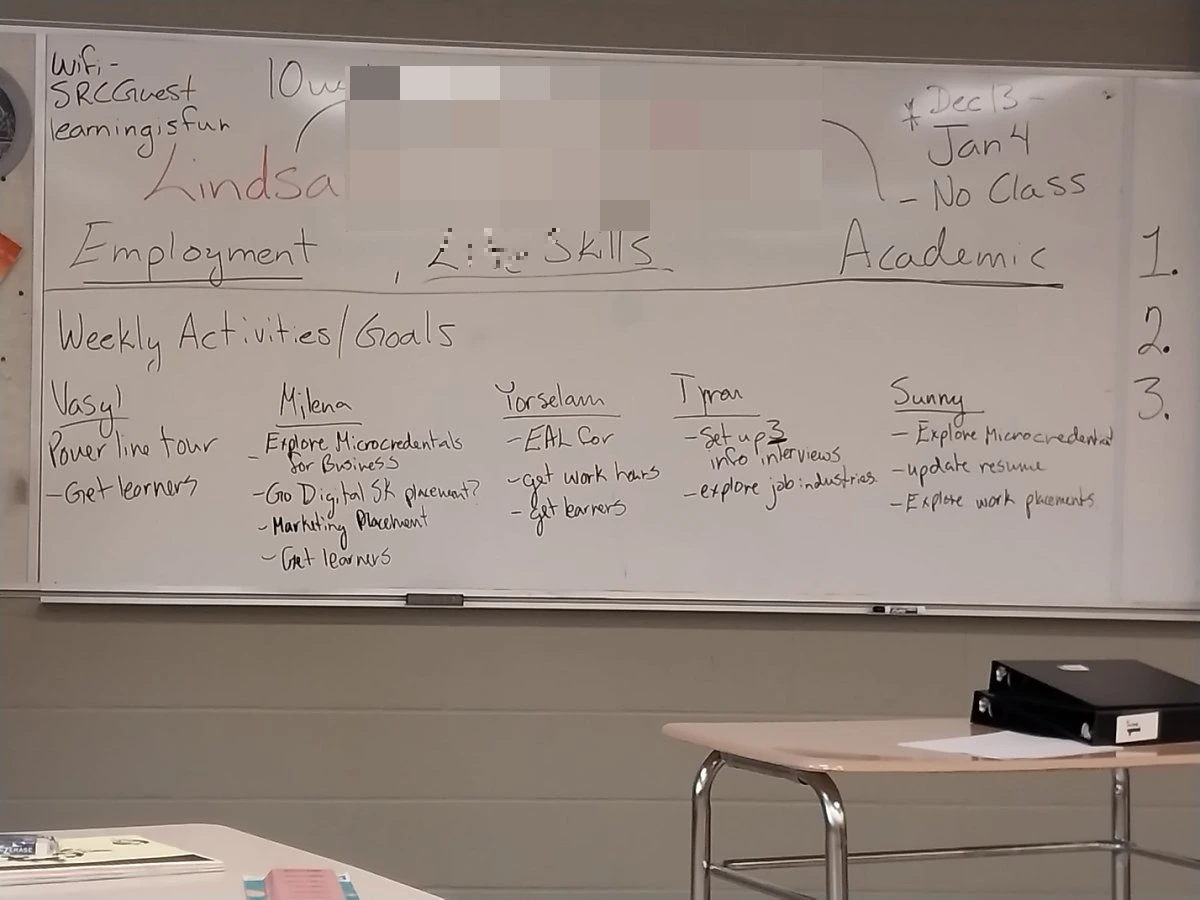 Wifi-
SRCGuest
learningisfun
10
Lindsa
* Dec 13 -
Jan 4
- No Class
Employment
Life Skills
Academic
Weekly Activities/Goals
Vasyl
Power line tour
- Get learners
Milena
- Explore Microcredentials
for Business
- Go Digital SK placement?
- Marketing Placement
- Get learners
Yorselam
- EAL Cor
- get work hours
- get learners
- Set up 3
info interviews
- explore job industries
Sunny
- Explore Microcredential
- update resume
- Explore work placements
1.
2.
3.